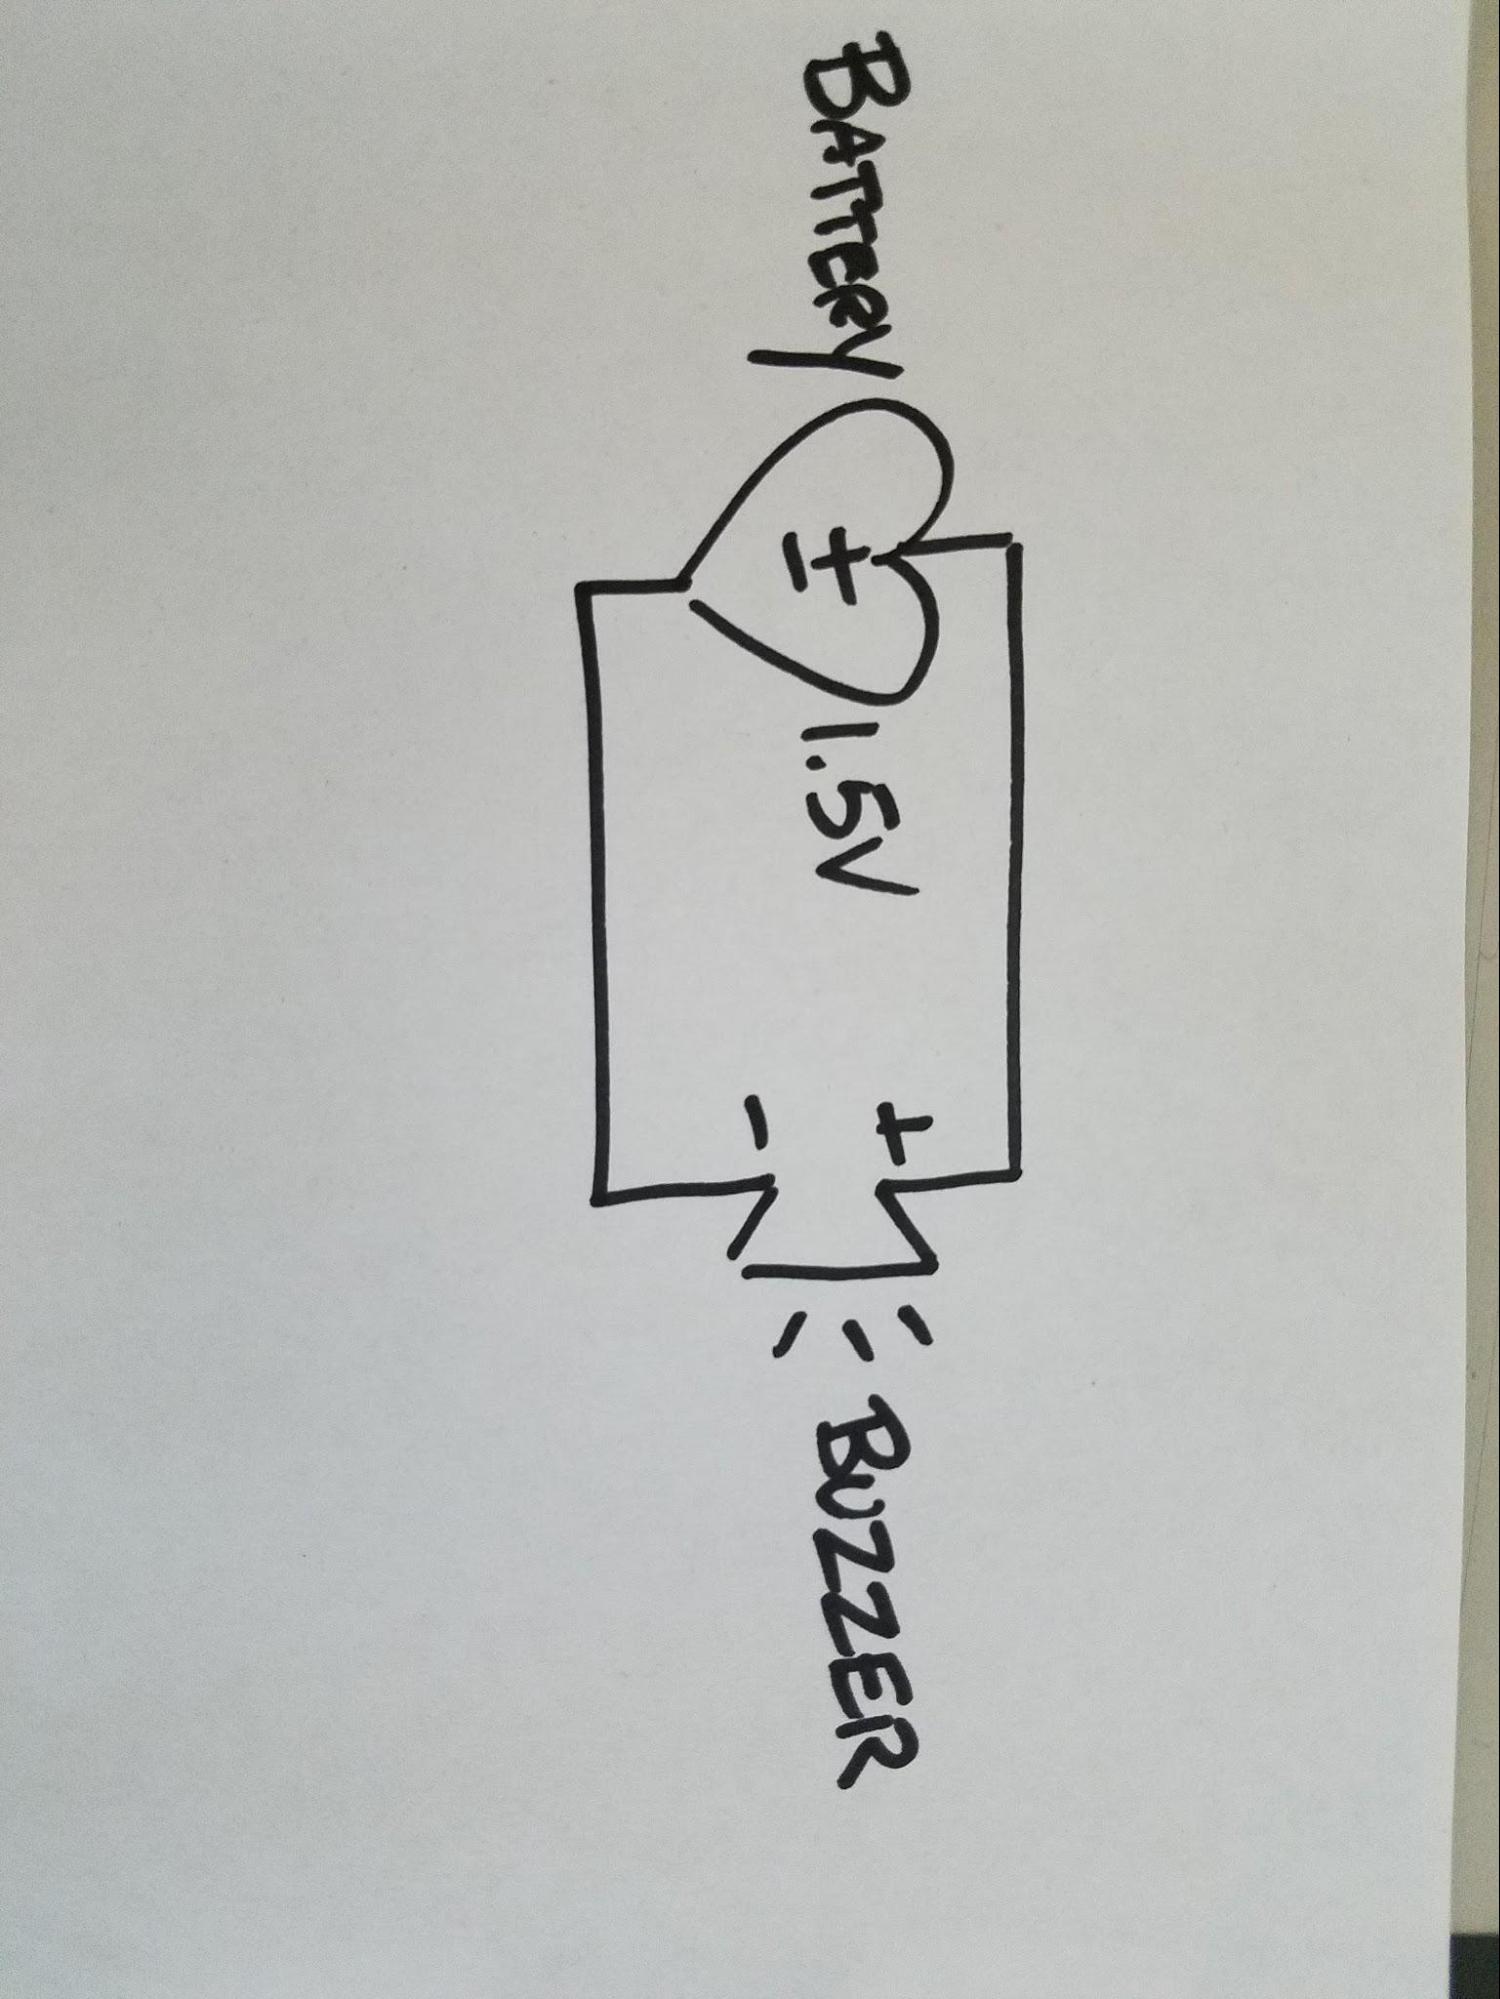 BATTERY
+
-
1.5V
+
-
BUZZER